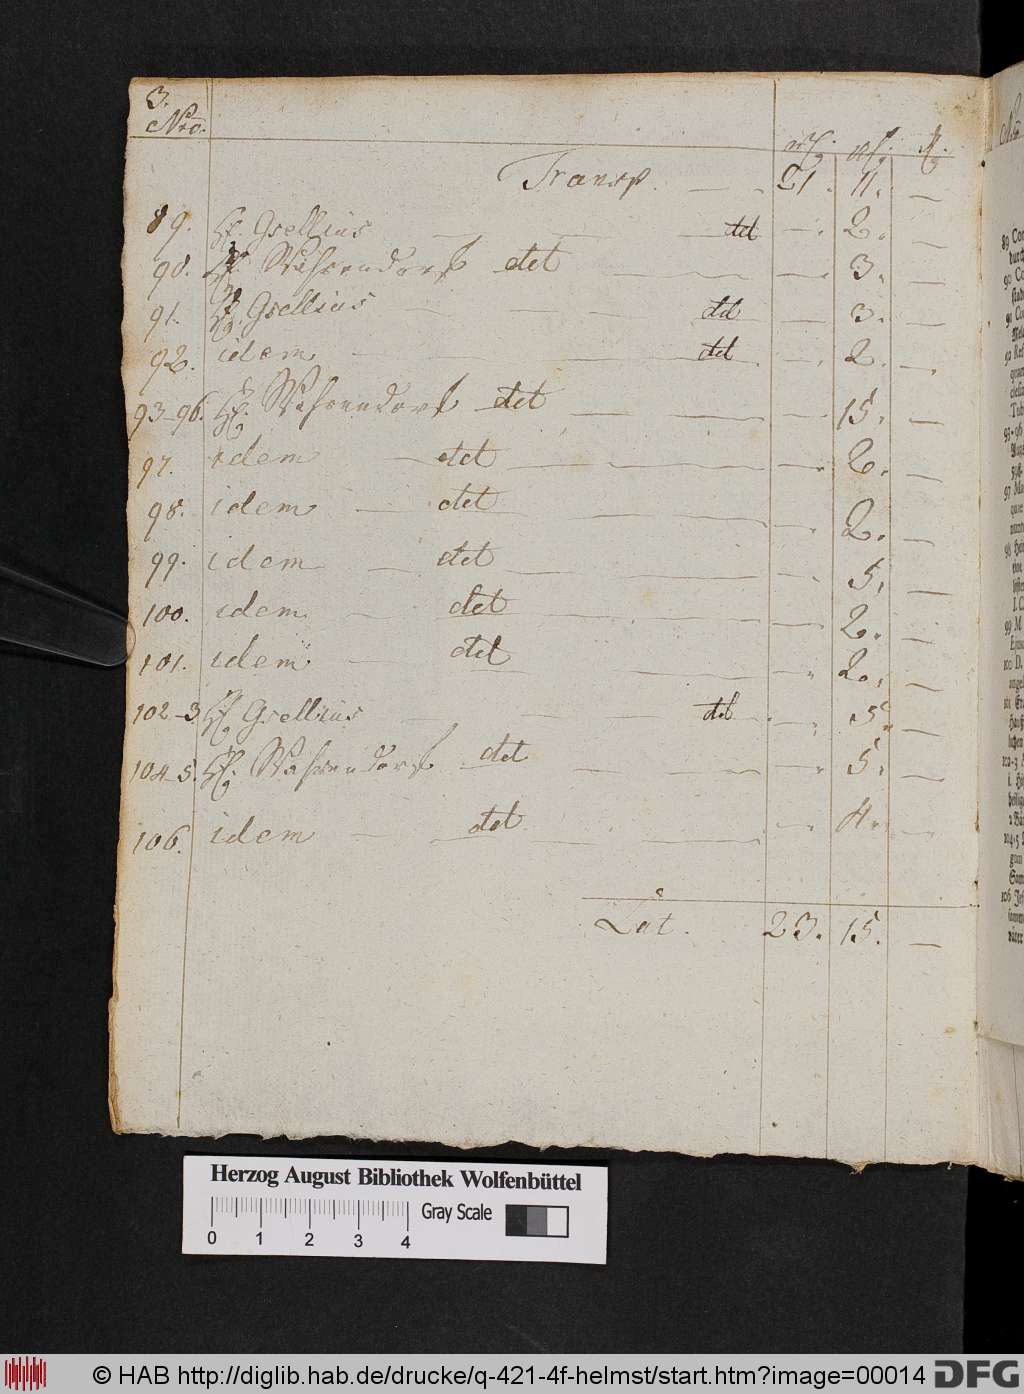 3.
Nro.
Transp. 21. 11. —
89. H. Gsellius det — 2. —
90. H. Wehrendorf det — 3. —
91. H. Gsellius det — 3. —
92. idem det — 2. —
93-96. H. Wehrendorf det — 15. —
97. idem det — 2. —
98. idem det — 2. —
99. idem det — 5. —
100. idem det — 2. —
101. idem det — 2. —
102-3 H. Gsellius det — 5. —
104-5. H. Wehrendorf det — 5. —
106. idem det — 4. —
Lat. 23. 15. —
Herzog August Bibliothek Wolfenbüttel
Gray Scale
0 1 2 3 4
© HAB http://diglib.hab.de/drucke/q-421-4f-helmst/start.htm?image=00014
DFG